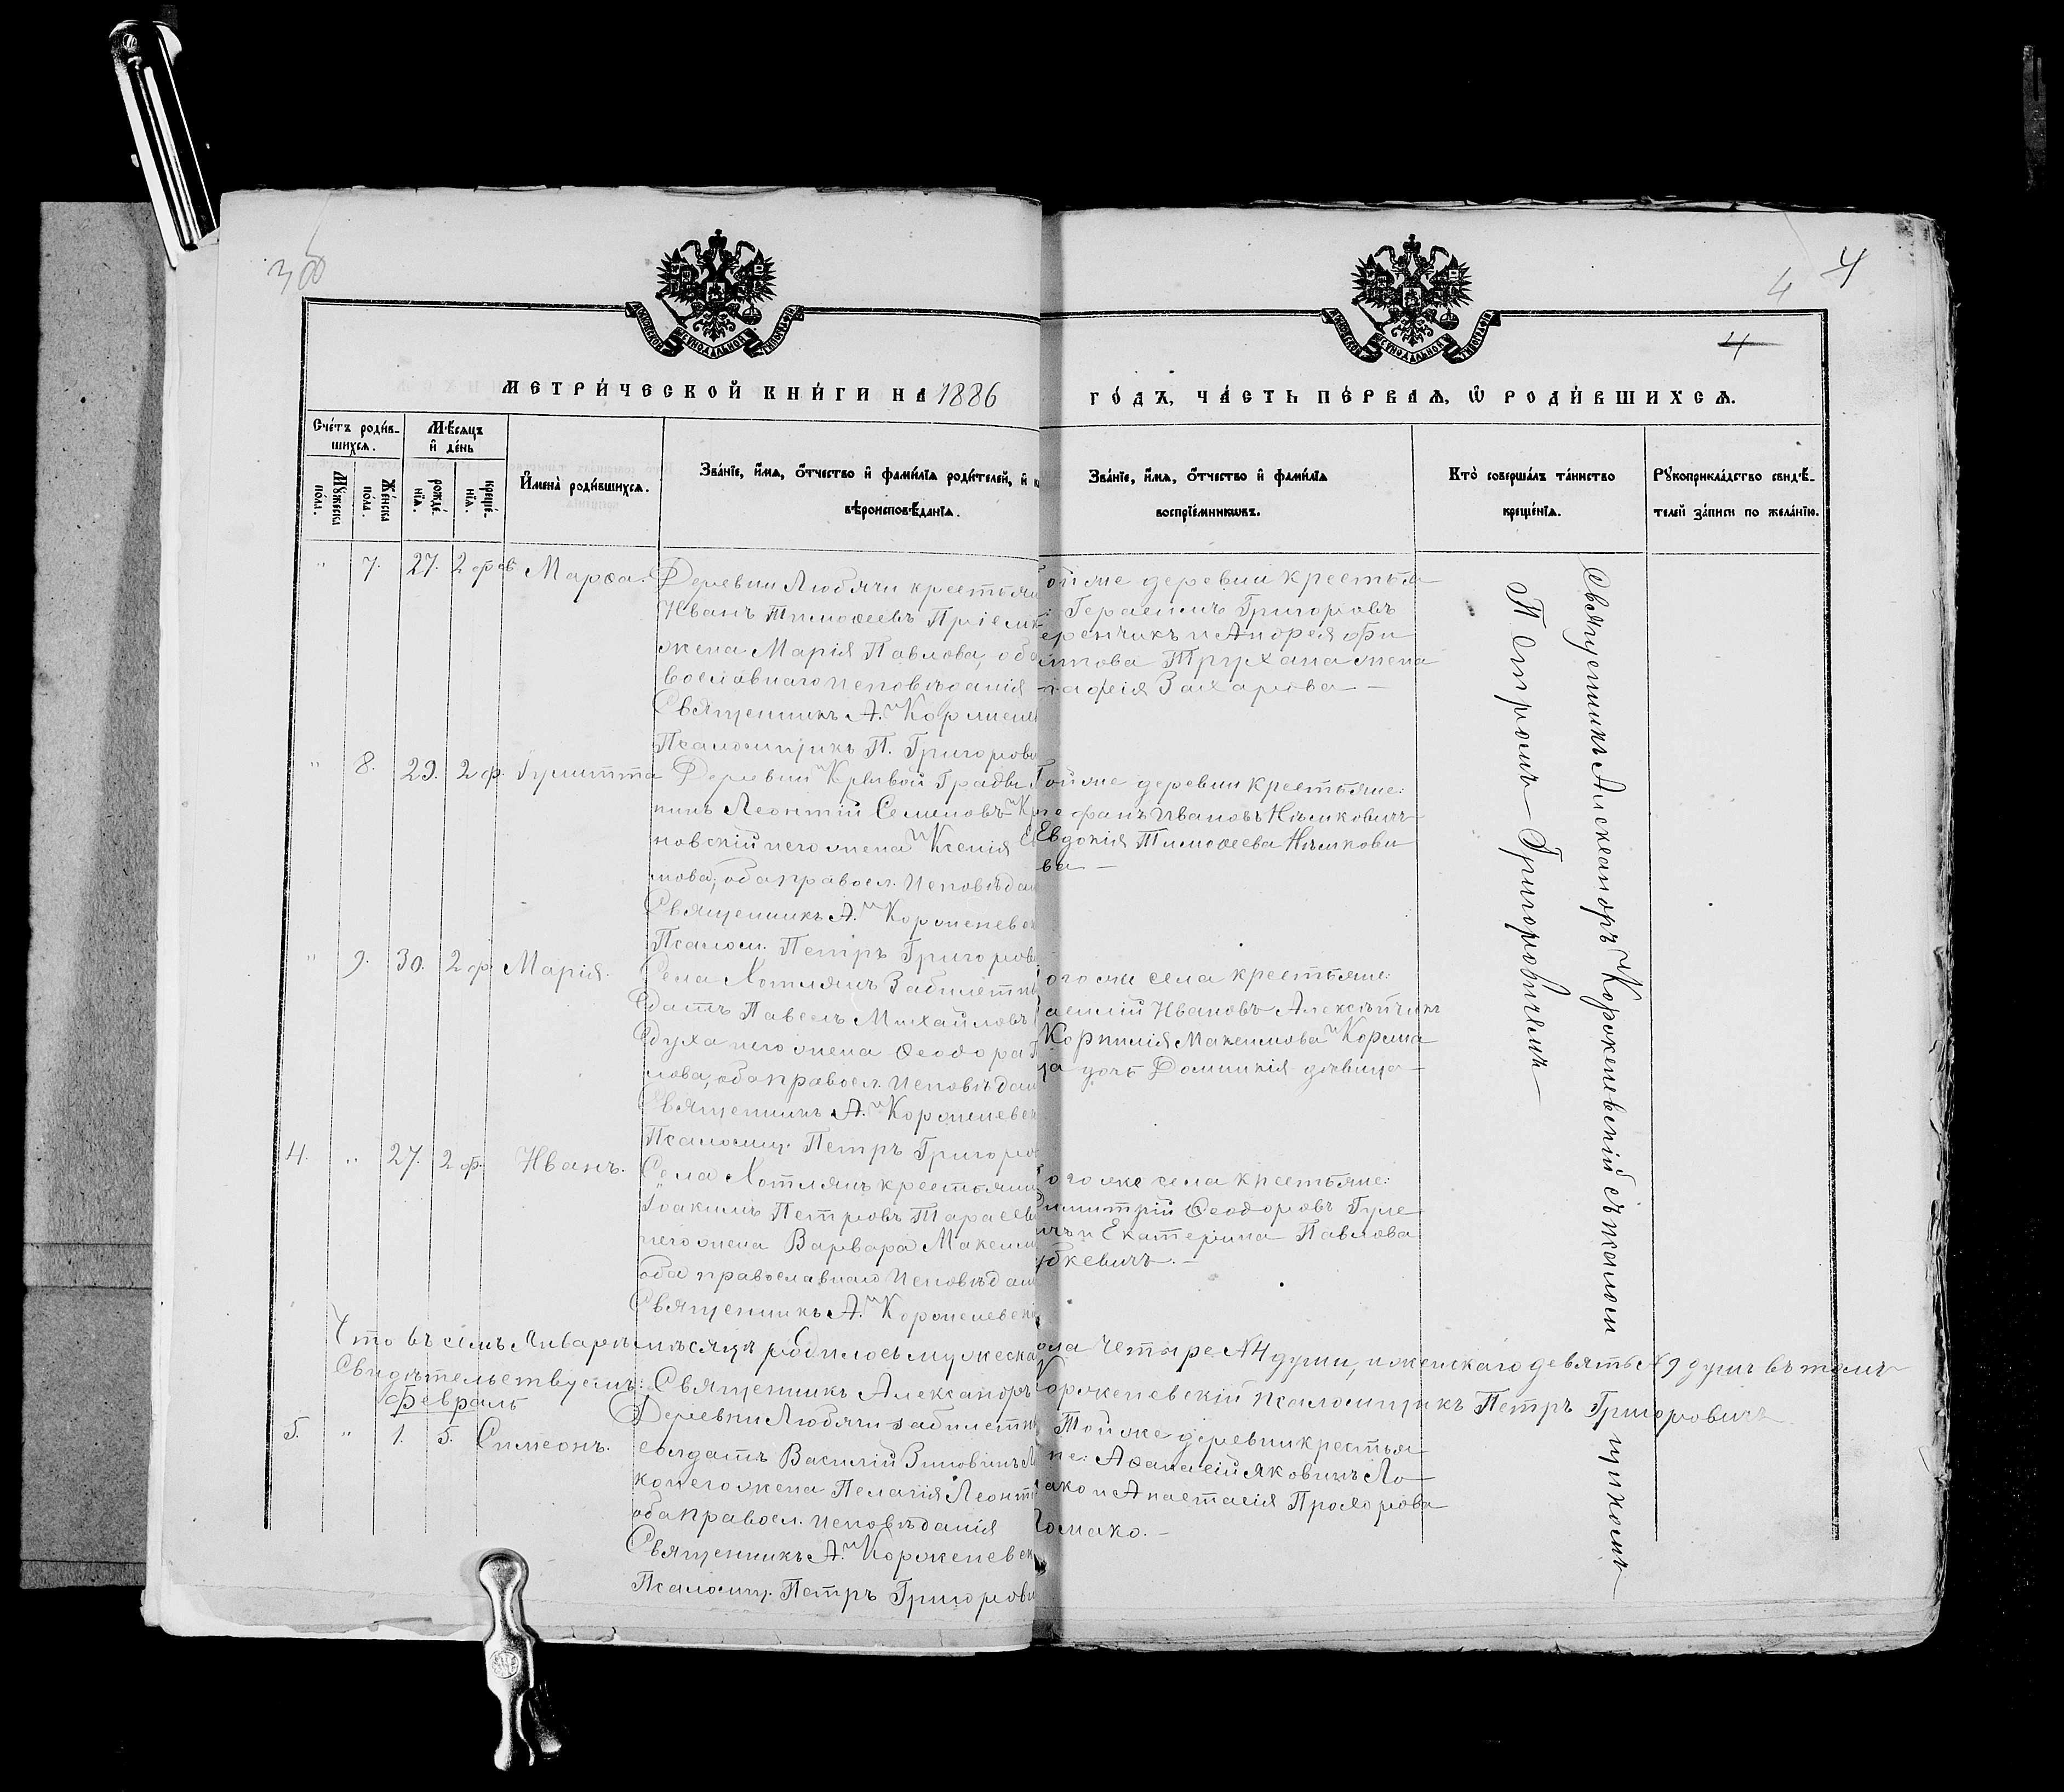 4
4
4
МЕТРИЧЕСКОЙ КНИГИ НА 1886
ГОДЪ, ЧАСТЬ ПЕРВАЯ, Ѡ РОДИВШИХСЯ.
Счетъ родив-
шихся.
Мужеска
пола.
Женска
пола.
Мѣсяцъ
и день
рожде-
нія.
креще-
нія.
Имена родившихся.
Званіе, имя, отчество и фамилія родителей, и к
вѣроисповѣданія.
Званіе, имя, отчество и фамилія
воспріемниковъ.
Кто совершалъ таинство
крещенія.
Рукоприкладство свидѣ-
телей записи по желанію.
" 7. 27. 2 фев Марѳа.
Деревни Любячи крестьян
Иванъ Тимоѳеевъ Пріемк
жена Марія Павлова, оба
вославнаго исповѣданія
Священникъ А. Корженев
Псаломщикъ П. Григорови
ой же деревни крестья
Герасимъ Григорьевъ
еренчикъ и Андрея Фи
иппова Трухана жена
афія Захарьева —
" 8. 29. 2 ф.
Деревни Кривой Гряды
нинъ Леонтій Семеновъ
новскій и его жена Ксенія
мова, оба правосл. исповѣдан
Священникъ А. Корженевск
Псалом. Петръ Григорови
Той же деревни крестьяне:
фанъ Ивановъ Нѣмковичъ
Евдокія Тимоѳеева Нѣмкови
ва —
" 9. 30. 2 ф Марія.
Села Хотлянъ Забилетн
датъ Павелъ Михайловъ
духа и его жена Ѳеодора
лова, оба правосл. исповѣдан
Священникъ А. Корженевск
Псаломщ. Петръ Григоров
ого же села крестьяне:
асилій Ивановъ Алексѣйчикъ
Корнилія Максимова Корма
ча дочь Домникія дѣвица —
4. " 27. 2 ф. Иванъ.
Села Хотлянъ крестьянин
Іоакимъ Петровъ Тарасев
и его жена Варвара Максим
оба православнаго исповѣдан
Священникъ А. Корженевскі
ого же села крестьяне:
Димитрій Ѳеодоровъ Гуле
ичъ и Екатерина Павлова
убкевичъ. —
Что въ семъ Январѣ мѣсяцѣ родилось мужеска
ола четыре №4 души, и женскаго девять №9 душъ въ томъ
Свидѣтельствуемъ: Священникъ Александръ
Корженевскій Псаломщикъ Петръ Григоровичъ.
Февраль
5. " 1. 5. Симеонъ.
Деревни Любячи забилетн
солдатъ Василій Зиновинъ Л
ко и его жена Пелагія Леонт
оба правосл. исповѣданія
Священникъ А. Корженевск
Псаломщ. Петръ Григорови
Той же деревни крестья
не: Аѳанасій Яковинъ Ло
ако и Анастасія Прохорова
Ломако. —
Священникъ Александръ Корженевскій съ псалом
щикомъ
Петромъ Григоровичемъ